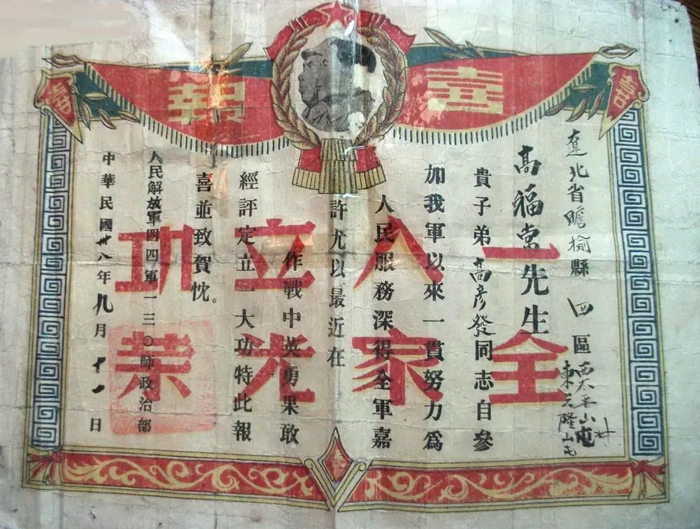 喜報
喜
喜
一人立功
全家光榮
遼北省瞻榆縣四區
東 隆山屯
高福 先生
貴子弟高彥發同志自參
加我軍以來一貫努力爲
人民服務深得全軍嘉
許尤以最近在
作戰中英勇果敢
經評定立大功特此報
喜並致賀忱。
人民解放軍四四軍一三〇師政治部
中華民國卅八年九月十一日